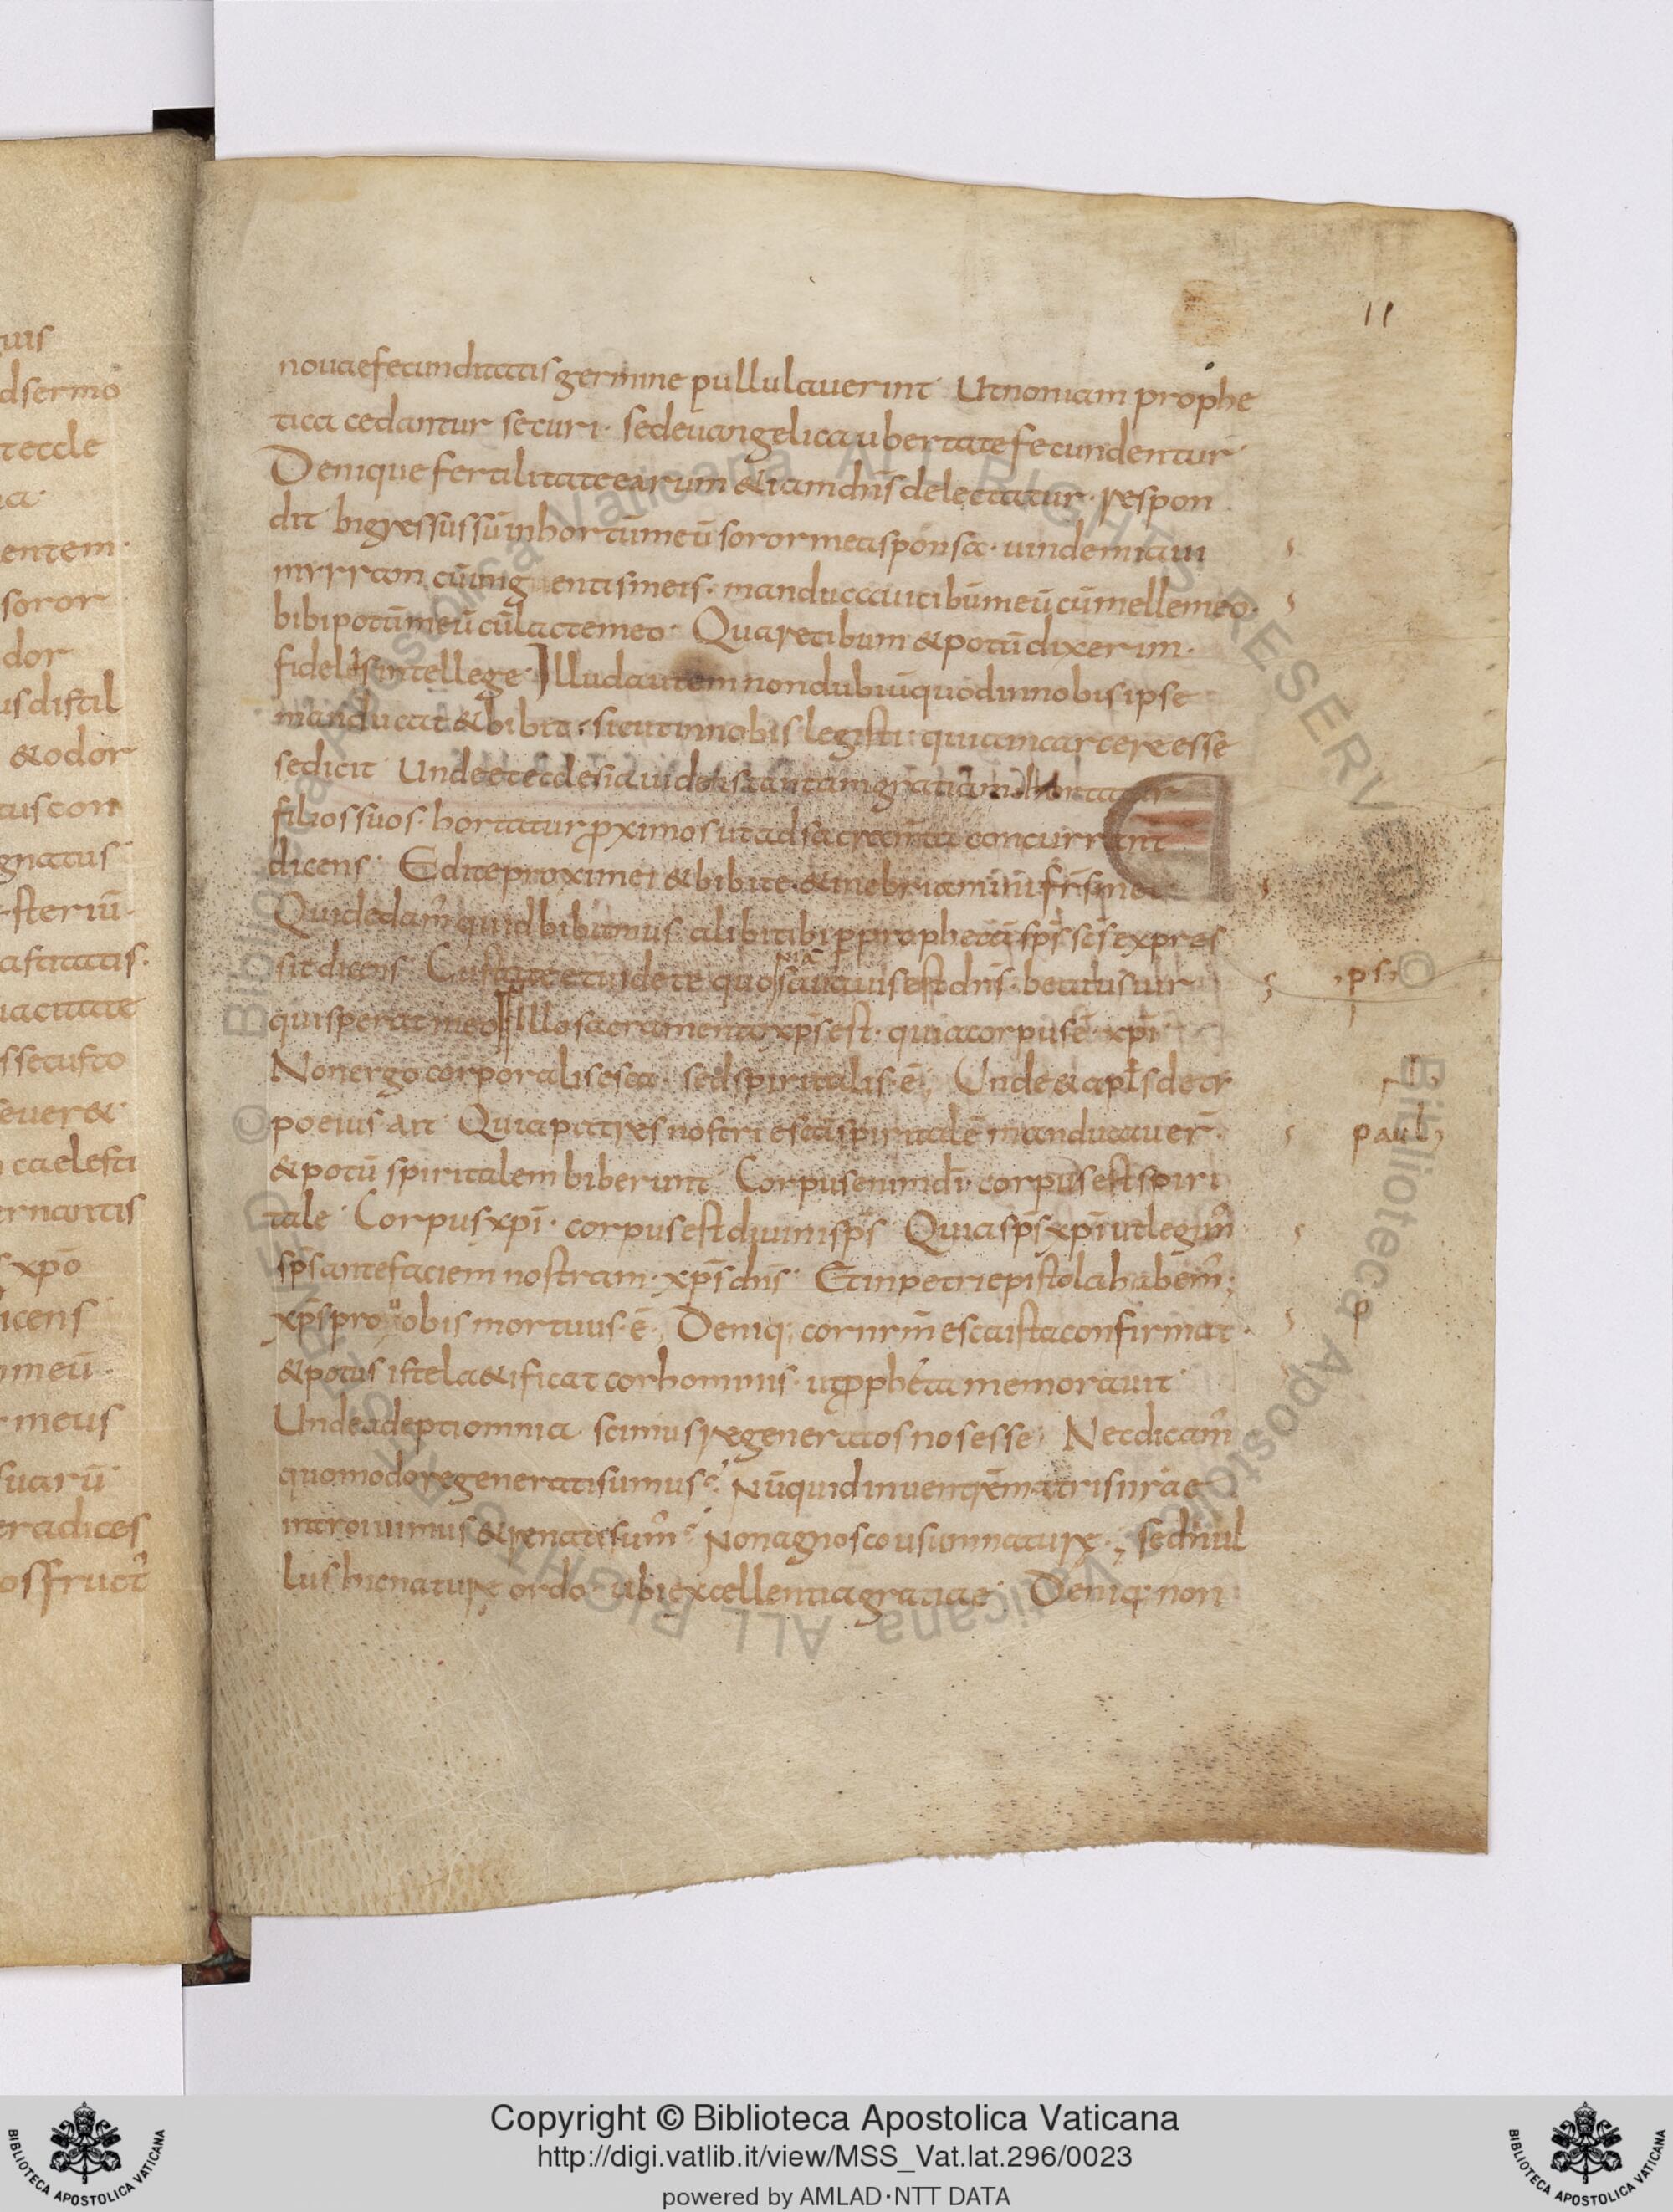 11
nouae fecunditatis germine pullulauerint· Ut non iam prophe
tica cedantur securi· sed euangelica ubertate fecundentur·
Denique fertilitate earum & iam dn̄s delectatur· respon
dit· Ingressus sū in hortū meū soror mea sponsa· uindemiaui
mirram cū unguentis meis· manducaui cibū meū cū melle meo·
bibi potū meū cū lacte meo· Quare cibum & potū dixerim·
fidelis intellege· Illud autem non dubiū quod in nobis ipse
manducat & bibit· sicut in nobis legisti· quia in carcere esse
se dicit· Unde et ecclesia uidens tantam gratiam hortatur
filios suos· hortatur ꝓximos ut ad sacramta concurrant
dicens· Edite proximei & bibite· & inebriamini fr̄s mei
Quid edam̄ quid bibamus alibi tibi ꝑ prophetā sp̄s sc̄s expres
sit dicens· Gustate et uidete quoniā suauis est dn̄s· beatus uir
qui sperat in eo· In illo sacramento xp̄s est· quia corpus ē xp̄i·
Non ergo corporalis esca· sed spiritalis· ē; Unde & apl̄s de ty
po eius ait· Quia patres nostri escā spiritalē manducauer̄·
& potū spiritalem biberunt· Corpus enim dī· corpus est spiri
tale· Corpus xp̄i· corpus est diuini sp̄s· Quia sp̄s xp̄i ut legim̄
sp̄s ante faciem nostram· xp̄s dn̄s· Et in petri epistola habem̄;
xp̄s pro uobis mortuus· ē; Deniq; cor nr̄m esca ista confirmat·
& potus iste la&ificat cor hominis· ut ꝓpheta memorauit·
Unde adepti omnia scimus regeneratos nos esse· Nec dicam̄
quomodo regenerati sumus? Nūquid in uentrē matris nr̄ae
introiuimus & renati sum̄? Non agnosco usum naturę·; sed nul
lus hic naturę ordo· ubi excellentia gratiae· Deniq; non
ps
paul
p
uis
d sermo
t eccle
a·
entem·
soror
dor
us distil
& odor
tus con
gnatus
steriū·
a castitatis·
uacitate
ssecusto
seuer&·
caelesti
ernantis
s xp̄o
dicens
meū·
meus
suarū
eradices
os fruct̄
Copyright © Biblioteca Apostolica Vaticana
http://digi.vatlib.it/view/MSS_Vat.lat.296/0023
powered by AMLAD·NTT DATA
BIBLIOTECA APOSTOLICA VATICANA
BIBLIOTECA APOSTOLICA VATICANA
© Biblioteca Apostolica Vaticana ALL RIGHTS RESERVED
© Biblioteca Apostolica Vaticana ALL RIGHTS RESERVED